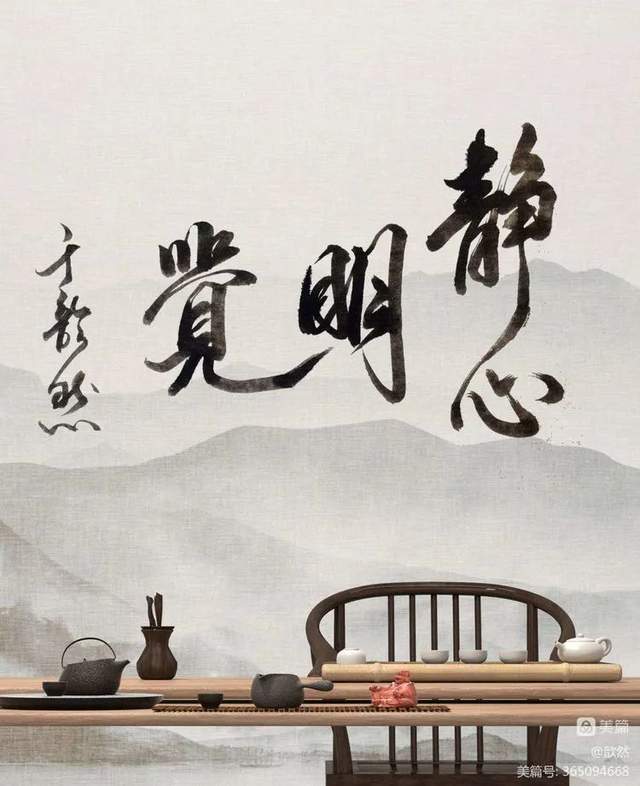 静心
明
覺
于歆然
美篇
@歆然
美篇号: 365094668